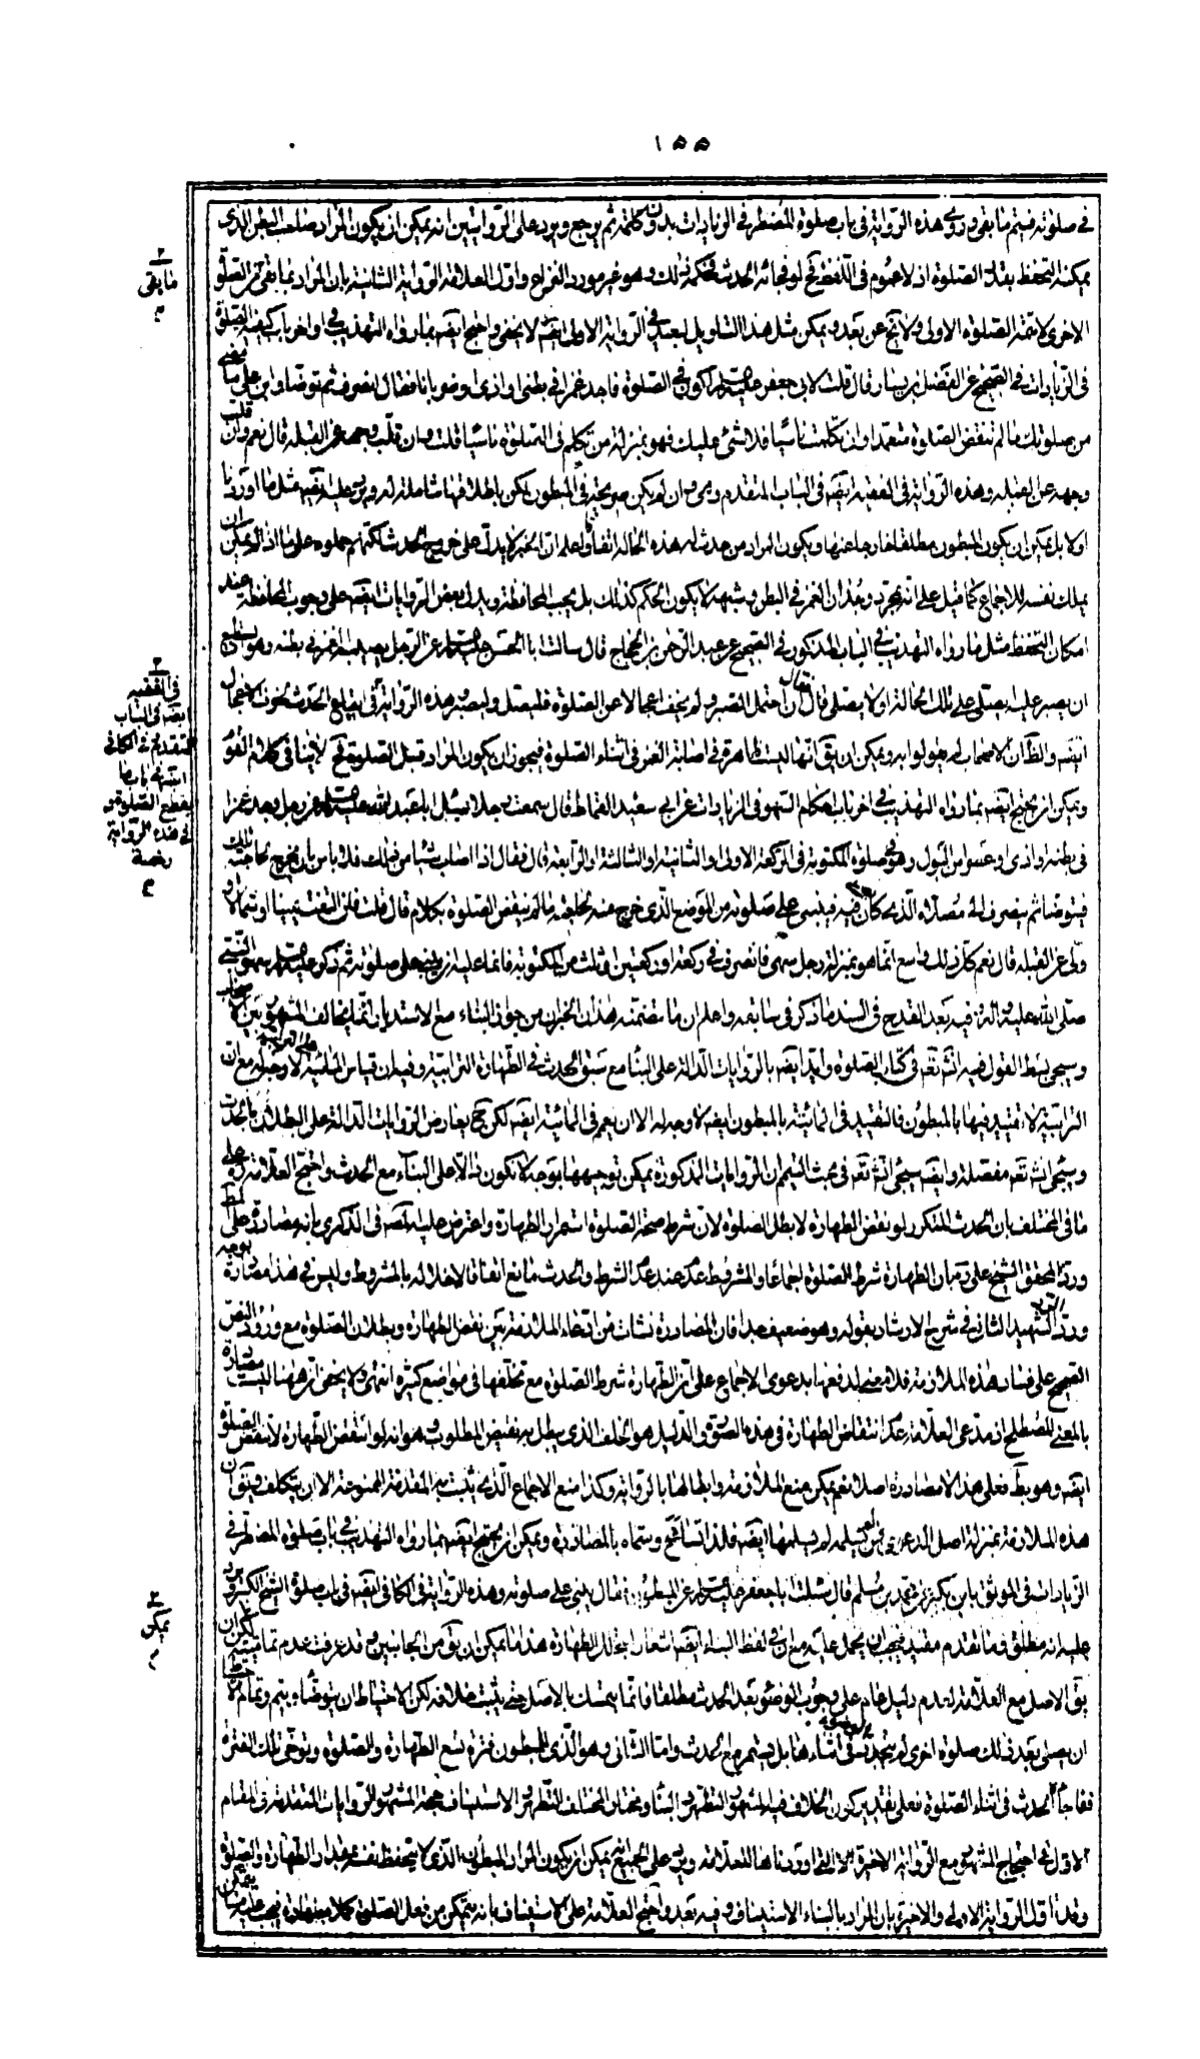 ١٥٥
في صلوته فيتم ما بقى وروى هذه الرواية في باب صلوة المضطر في الزيادات بدون كلمة ثم يرجع ويرد على الروايتين انه يمكن ان يكون المراد صاحب البطن الذى
يمكنه التحفظ بقدر الصلوة اذ لا عموم في اللفظ فح لو فجائه الحدث فحكمه ذلك وهو غير مورد النزاع واول العلامة الرواية الثانية بان المراد بما بقى
الاخرى لا تتمة الصلوة الاولى ولا يخ عن بعد ويمكن مثل هذا التاويل البعيد في الرواية الاولى ايضه لا يخفى واحتج ايضه بما رواه التهذيب في اواخر باب كيفية الصلوة
في الزيادات في الصحيح عن الفضيل بن يسار قال قلت لابى جعفر عليه السلام اكون في الصلوة فاجد غمزا في بطنى او اذى او ضربانا فقال انصرف ثم توضا وابن على ما مضى
من صلوتك ما لم تنقض الصلوة متعمدا وان تكلمت ناسيا فلا شئ عليك فهو بمنزلة من تكلم في الصلوة ناسيا قلت وان قلب وجهه عن القبلة قال نعم وان قلب
وجهه عن القبلة وهذه الرواية في الفقيه ايضه في الباب المتقدم وهى وان لم يكن صريحة في المبطون لكن باطلاقها شاملة له ويرد عليه ايضه مثل ما اوردنا
اولا بل يمكن ان يكون المبطون مطلقا خارجا عنها ويكون المراد من حدث له هذه الحالة اتفاقا واعلم ان الخبر لا يدل على خروج الحدث لكنهم حملوه على ما اذا لم يمكن ان
يملك نفسه للاجماع كما قيل على انه بمجرد وجدان الغمز في البطن وشبهه لا يكون الحكم كذلك بل يجب المحافظة ويدل بعض الروايات ايضه على وجوب المحافظة عند
امكان التحفظ مثل ما رواه التهذيب في الباب المذكور في الصحيح عن عبد الرحمن بن الحجاج قال سالت ابا الحسن عليه السلام عن الرجل يصيبه الغمز في بطنه وهو يستطيع
ان يصبر عليه ايصلى على تلك الحالة او لا يصلى قال فقال ان احتمل الصبر ولم يخف اعجالا عن الصلوة فليصل وليصبر
ويمكن ان يحتج ايضه بما رواه التهذيب في اخر باب احكام السهو في الزيادات عن ابى سعيد القماط قال سمعت رجلا يسئل ابا عبد الله عليه السلام عن رجل وجد غمزا
في بطنه او اذى او عصرا من البول وهو في صلوة المكتوبة في الركعة الاولى او الثانية او الثالثة او الرابعة قال فقال اذا اصاب شيئا من ذلك فلا باس بان يخرج لحاجته تلك
فيتوضا ثم ينصرف الى مصلاه الذى كان يصلى فيه فيبنى على صلوته من الموضع الذى خرج منه لحاجته ما لم ينقض الصلوة بكلام قال قلت فان التفت يمينا او شمالا او
ولى عن القبلة قال نعم كل ذلك واسع انما هو بمنزلة رجل سهى فانصرف في ركعة او ركعتين او ثلث من المكتوبة فانما عليه ان يبنى على صلوته ثم ذكر سهو النبى
صلى الله عليه واله وفيه بعد القدح في السند ما ذكر في سابقه واعلم ان ما تضمنه هذان الخبران من جواز البناء مع الاستدبار مما يخالف المشهور بين الاصحاب
وسيجئ بسط القول فيه انش تعه في كتاب الصلوة وايد ايضه بالروايات الدالة على البناء مع سبق الحدث في الطهارة الترابية وفيه ان قياس المائية على الترابية لا وجه له مع ان
الترابية لا تقييد فيها بالمبطون فالتقييد في المائية بالمبطون ايضه لا وجه له الا ان يعم في المائية ايضه لكن ح يعارض الروايات الدالة على البطلان بالحدث
وسيجئ انش تعه مفصلة وايضه سيجئ انش تعه في بحث التيمم ان الروايات المذكورة يمكن توجيهها بوجه لا تكون دالة على البناء مع الحدث واحتج العلامة ره على
ما في المختلف بان الحدث المتكرر لو نقض الطهارة لابطل الصلوة لان شرط صحة الصلوة استمرار الطهارة واعترض عليه المصه في الذكرى بانه مصادرة على المط
ورده المحقق الشيخ على ره بان الطهارة شرط الصلوة اجماعا والمشروط عدم عند عدم الشرط والحدث مانع اتفاقا لاخلاله بالمشروط وليس في هذا مصادرة بوجه
ورد الشهيد الثانى في شرح الارشاد بقوله وهو ضعيف جدا فان المصادرة نشات من ادعاء الملازمة بين نقض الطهارة وبطلان الصلوة مع ورود النص
الصحيح على فساد هذه الملازمة فلا معنى لدفعها بدعوى الاجماع على ان الطهارة شرط الصلوة مع تخلفها في مواضع كثيرة انتهى ولا يخفى انه ههنا ليست مصادرة
بالمعنى المصطلح اذ مدعى العلامة عدم انتقاض الطهارة في هذه الصورة والدليل هو الخلف الذى يبطل به نقيض المطلوب وهو انه لو انتقض الطهارة لانتقض الصلوة
ايضه وهو بط فعلى هذا لا مصادرة اصلا نعم يمكن منع الملازمة وابطالها بالرواية وكذا منع الاجماع الذى يثبت به المقدمة الممنوعة الا ان يتكلف ويق ان
هذه الملازمة بمنزلة اصل المدعى فمن لم يسلمه لم يسلمها ايضه فلذا تسامح وسماه بالمصادرة ويمكن ان يحتج ايضه بما رواه التهذيب في باب صلوة المضطر في
الزيادات في الموثق بابن بكير عن محمد بن مسلم قال سئلت ابا جعفر عليه السلام عن المبطون فقال يبنى على صلوته وهذه الرواية في الكافى ايضه في باب صلوة الشيخ الكبير ويرد
عليه انه مطلق وما تقدم مقيد فيجب ان يحمل عليه مع ان في لفظ البناء ايضه اشعارا بتخلل الطهارة هذا ما يمكن ان يق من الجانبين وقد عرفت عدم تمامية
بقى الاصل مع العلامة لعدم دليل عام على وجوب الوضوء بعد الحدث مطلقا فانما يتمسك بالاصل حتى يثبت خلافه لكن الاحتياط ان يتوضا ويتم وتمام الاحتياط
ان يصلى بعد ذلك صلوة اخرى لم يتجدد في اثناءها بل يستمر مع الحدث واما الثانى وهو الذى للمبطون فترة تسع الطهارة والصلوة وتوخى تلك الفترة
ففاجأ الحدث في اثناء الصلوة فعلى تقدير كون الخلاف فيه المشهور التطهر والبناء ومختار المختلف التطهر والاستيناف حجة المشهور الروايات المتقدمة في المقام
الاول في احتجاج المشهور مع الرواية الاخيرة التى اوردناها للعلامة ويرد على الجميع انه يمكن ان يكون المراد المبطون الذى لا يتحفظ نفسه مقدار الطهارة والصلوة
وقد اول الرواية الاولى والاخيرة بان المراد بالبناء الاستيناف وفيه بعد واحتج العلامة على الاستيناف بانه يتمكن من فعل الصلوة كملا بطهارة فيجب عليه
ما بقى
في الفقيه
ايضه في الباب
المتقدم وفي الكافى
يقطع الصلوة
في هذه الرواية
يمكن